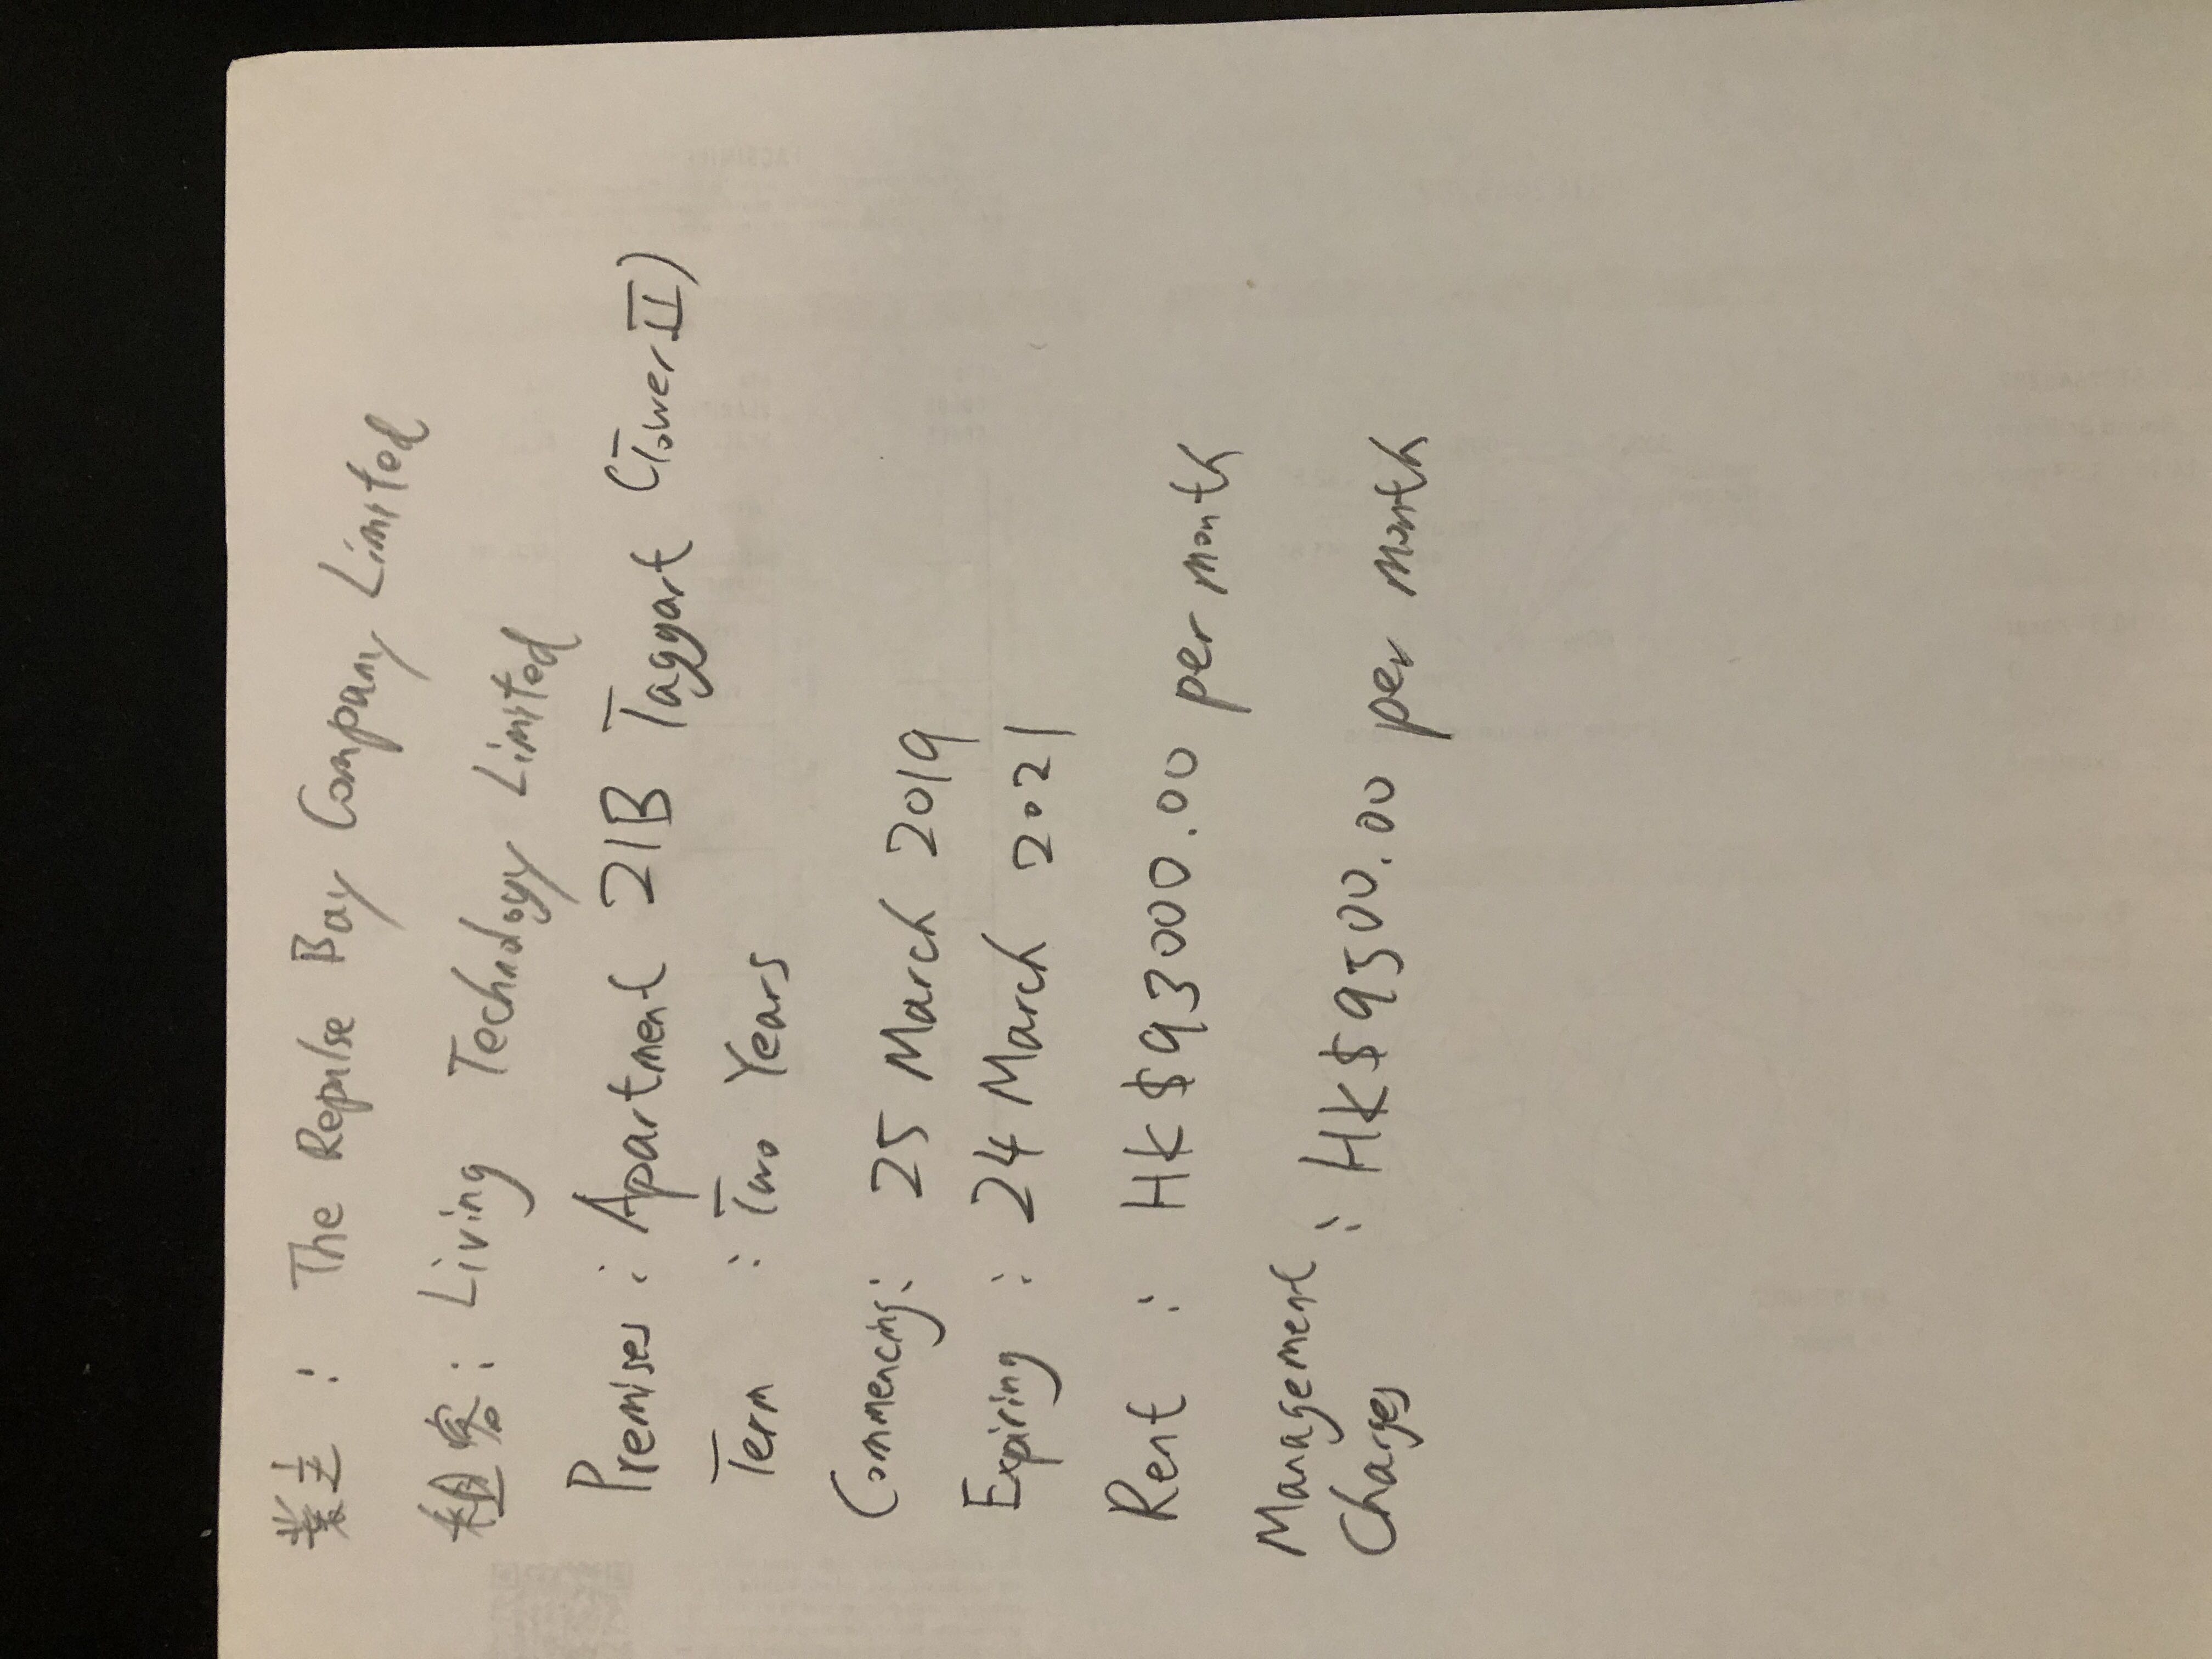 業主 : The Repulse Bay Company Limited
租客 : Living Technology Limited
Premises : Apartment 21B Taggart (Tower II)
Term : Two Years
Commencing : 25 March 2019
Expiring : 24 March 2021
Rent : HK$93000.00 per month
Management
Charges : HK$9300.00 per month